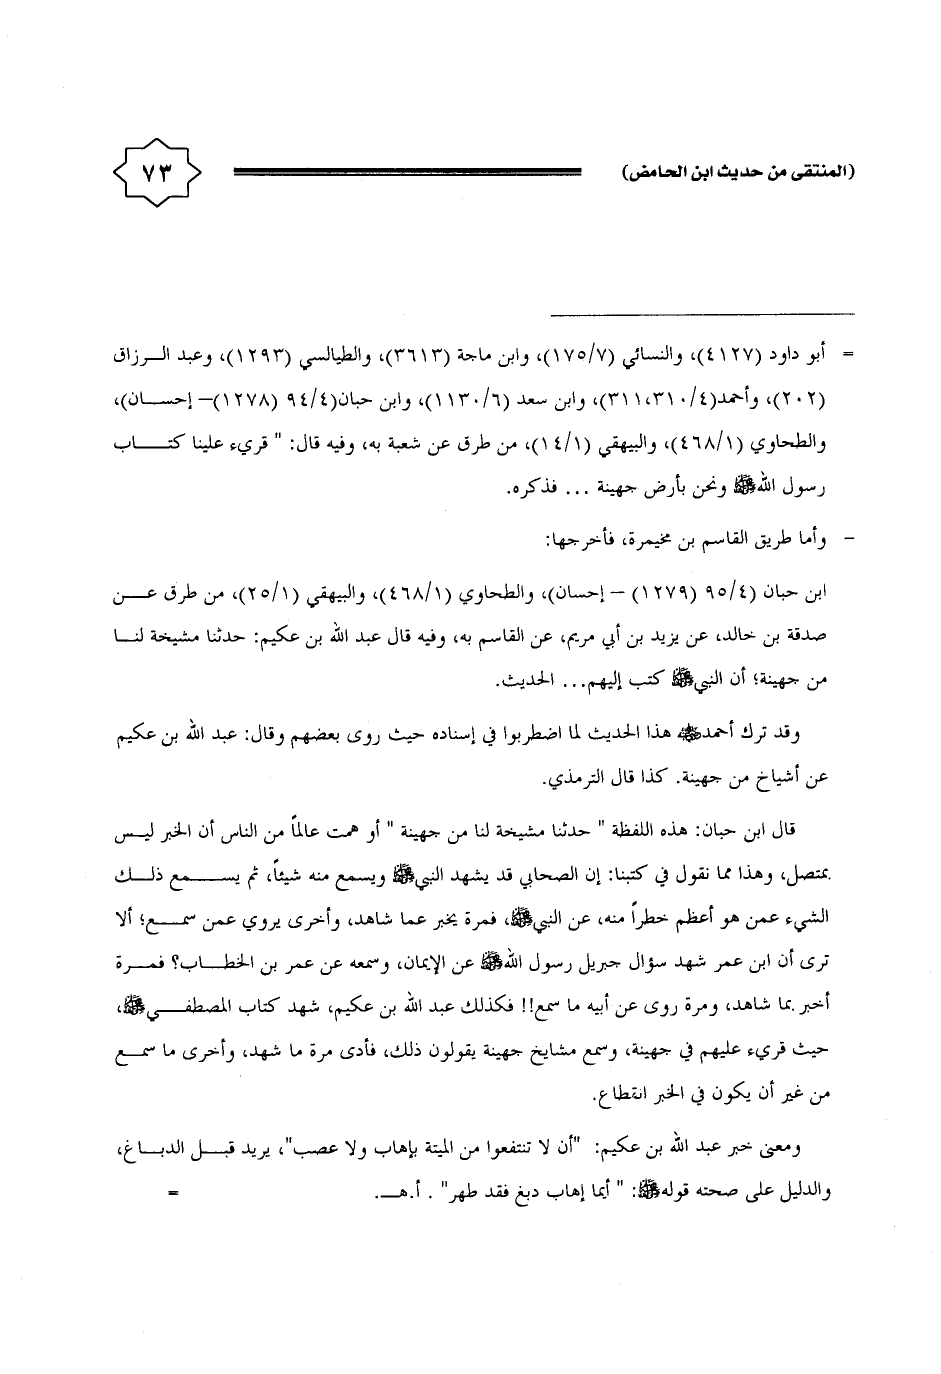 (المنتقى من حديث ابن الحامض)
٧٣
= أبو داود (٤١٢٧)، والنسائي (١٧٥/٧)، وابن ماجة (٣٦١٣)، والطيالسي (١٢٩٣)، وعبد الـرزاق
(٢٠٢)، وأحمد(٣١١،٣١٠/٤)، وابن سعد (١١٣٠/٦)، وابن حبان(٩٤/٤ (١٢٧٨)– إحســان)،
والطحاوي (٤٦٨/١)، والبيهقي (١٤/١)، من طرق عن شعبة به، وفيه قال: " قريء علينا كتـــاب
رسول اللهﷺ ونحن بأرض جهينة ... فذكره.
– وأما طريق القاسم بن مخيمرة، فأخرجها:
ابن حبان (٩٥/٤ (١٢٧٩) – إحسان)، والطحاوي (٤٦٨/١)، والبيهقي (٢٥/١)، من طرق عــن
صدقة بن خالد، عن يزيد بن أبي مريم، عن القاسم به، وفيه قال عبد الله بن عكيم: حدثنا مشيخة لنــا
من جهينة؛ أن النبيﷺ كتب إليهم... الحديث.
وقد ترك أحمد هذا الحديث لما اضطربوا في إسناده حيث روى بعضهم وقال: عبد الله بن عكيم
عن أشياخ من جهينة. كذا قال الترمذي.
قال ابن حبان: هذه اللفظة " حدثنا مشيخة لنا من جهينة " أو همت عالماً من الناس أن الخبر ليـس
بمتصل، وهذا مما نقول في كتبنا: إن الصحابي قد يشهد النبيﷺ ويسمع منه شيئاً، ثم يســـمع ذلـك
الشيء عمن هو أعظم خطراً منه، عن النبيﷺ، فمرة يخبر عما شاهد، وأخرى يروي عمن سمــع؛ ألا
ترى أن ابن عمر شهد سؤال جبريل رسول اللهﷺ عن الإيمان، وسمعه عن عمر بن الخطــاب؟ فمــرة
أخبر بما شاهد، ومرة روى عن أبيه ما سمع!! فكذلك عبد الله بن عكيم، شهد كتاب المصطفـــيﷺ،
حيث قريء عليهم في جهينة، وسمع مشايخ جهينة يقولون ذلك، فأدى مرة ما شهد، وأخرى ما سمــع
من غير أن يكون في الخبر انقطاع.
ومعنى خبر عبد الله بن عكيم: "أن لا تنتفعوا من الميتة بإهاب ولا عصب"، يريد قبـــل الدبـاغ،
والدليل على صحته قولهﷺ: " أيما إهاب دبغ فقد طهر" . أ.هـــ. =